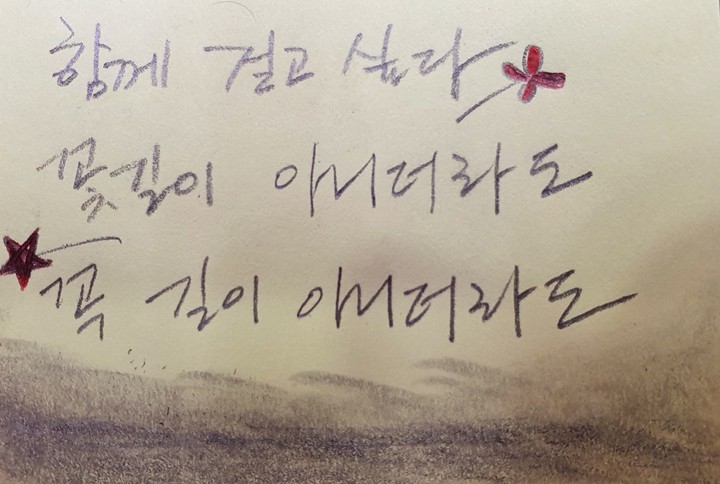 함께 걷고 싶다
꽃길이 아니더라도
꼭 길이 아니더라도